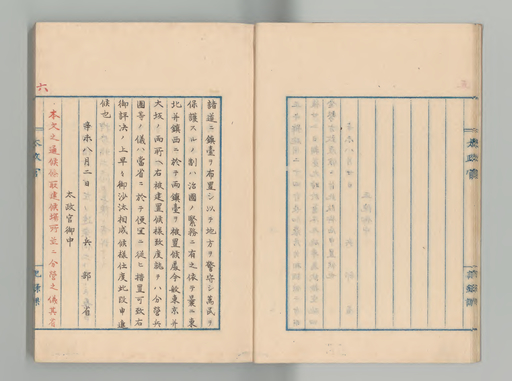 諸道ニ鎮臺ヲ布置シ以テ地方ヲ警守シ萬民ヲ
保護スルノ制ハ治國ノ緊務ニ有之依テ曩ニ東
北并鎮西ニ於テ両鎮臺ヲ被置候處今般東京并
大坂ノ両所ヘ右被建置候様致度就テハ分營兵
團等ノ儀ハ當省ニ於テ便宜ニ從ヒ措置可致右
御評決ノ上早々御沙汰相成候様仕度此段申進
候也
辛未八月二日 兵部省
太政官御中
本文之通候他取建候場所並ニ分營之儀其省
六
太政官
記録課